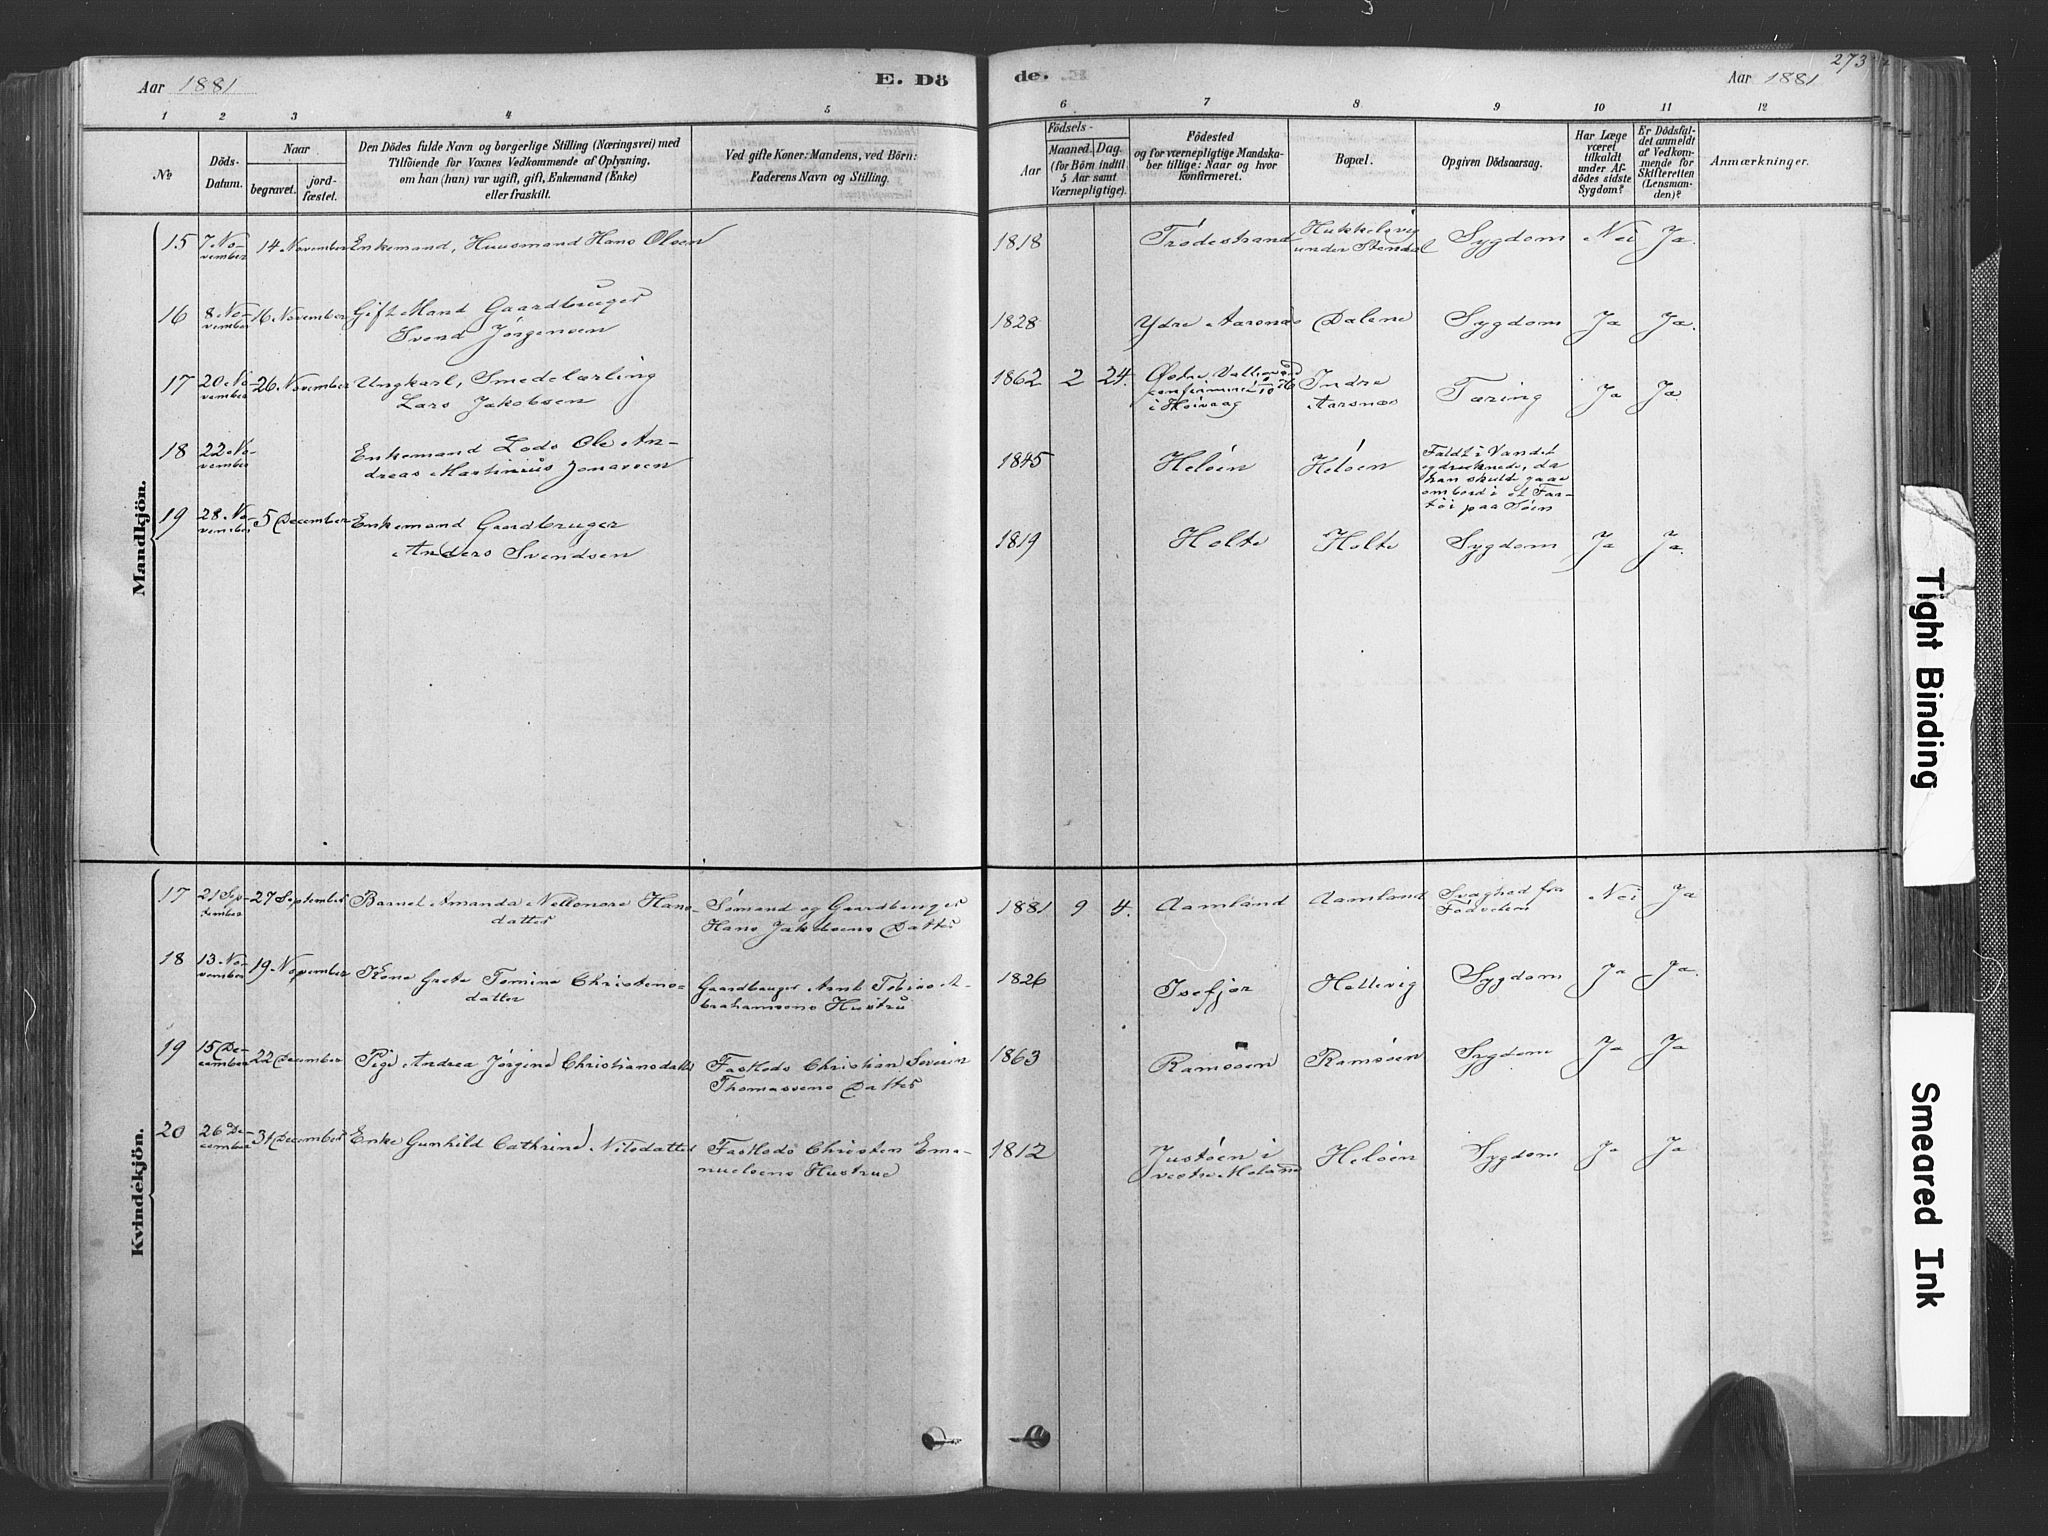 273
Aar 1881
E. Dö
de.
Aar 1881
1 2 3 4 5 6 7 8 9 10 11 12
№
Döds-
Datum.
Naar
begravet.
jord-
fæstet.
Den Dödes fulde Navn og borgerlige Stilling (Næringsvei) med
Tilföiende for Voxnes Vedkommende af Oplysning,
om han (hun) var ugift, gift, Enkemand (Enke)
eller fraskilt.
Ved gifte Koner: Mandens, ved Börn:
Faderens Navn og Stilling.
Födsels-
Aar
Maaned. Dag.
(for Börn indtil
5 Aar samt
Værnepligtige).
Födested
og for værnepligtige Mandska-
ber tillige: Naar og hvor
konfirmeret.
Bopæl.
Opgiven Dödsaarsag.
Har Læge
været
tilkaldt
under Af-
dödes sidste
Sygdom?
Er Dödsfal-
det anmeldt
af Vedkom-
mende for
Skifteretten
(Lensman-
den)?
Anmærkninger.
Mandkjön.
15 7 No-
vember
14 November
Enkemand, Huusmand Hans Olsen
1818
Trødestrand
under Stendal
Sygdom
Nei
Ja.
16 8 No-
vember
16 November
Gift Mand Gaardbruger
Svend Jørgensen
1828
Ydre Aarsnæs
Dalene
Sygdom
Ja
Ja.
17 20 No-
vember
26 November
Ungkarl, Smedelærling
Lars Jakobsen
1862 2 24.
i Høivaag
Indre
Aarsnæs
Tæring
Ja
Ja
18 22 No-
vember
Enkemand Lods Ole An-
dreas Martinius Jonassen
1845
Heløen
Heløen
Faldt i Vandet
og druknede, da
han skulde gaae
ombord i et Far-
tøi paa Søen
19 28 No-
vember
5 December
Enkemand Gaardbruger
Anders Svendsen
1819
Holte
Holte
Sygdom
Ja
Ja.
Kvindekjön.
17 21 Sep-
tember
27 September
Barnet Amanda Nellonore Hans-
datter
Sømand og Gaardbruger
Hans Jakobsens Datter
1881 9 4.
Aamland
Aamland
Svaghed fra
Fødselen
Nei
Ja
18 13 No-
vember
19 November
Kone Grete Tomine Christens-
datter
Gaardbruger Arnt Tobias A-
brahamsens Hustru
1826
Isefjær
Hellevig
Sygdom
Ja
Ja.
19 15 De-
cember
22 December
Pige Andrea Jørgine Christiansdatter
Fastlods Christian Severin
Thomassens Datter
1863
Ramsøen
Ramsøen
Sygdom
Ja
Ja
20 26 De-
cember
31 December
Enke Gunhild Cathrine Nilsdatter
Fastlods Christen Ema-
nuelsens Hustrue
1812
Justøen i
vestre Moland
Heløen
Sygdom
Ja
Ja
Tight Binding
Smeared Ink